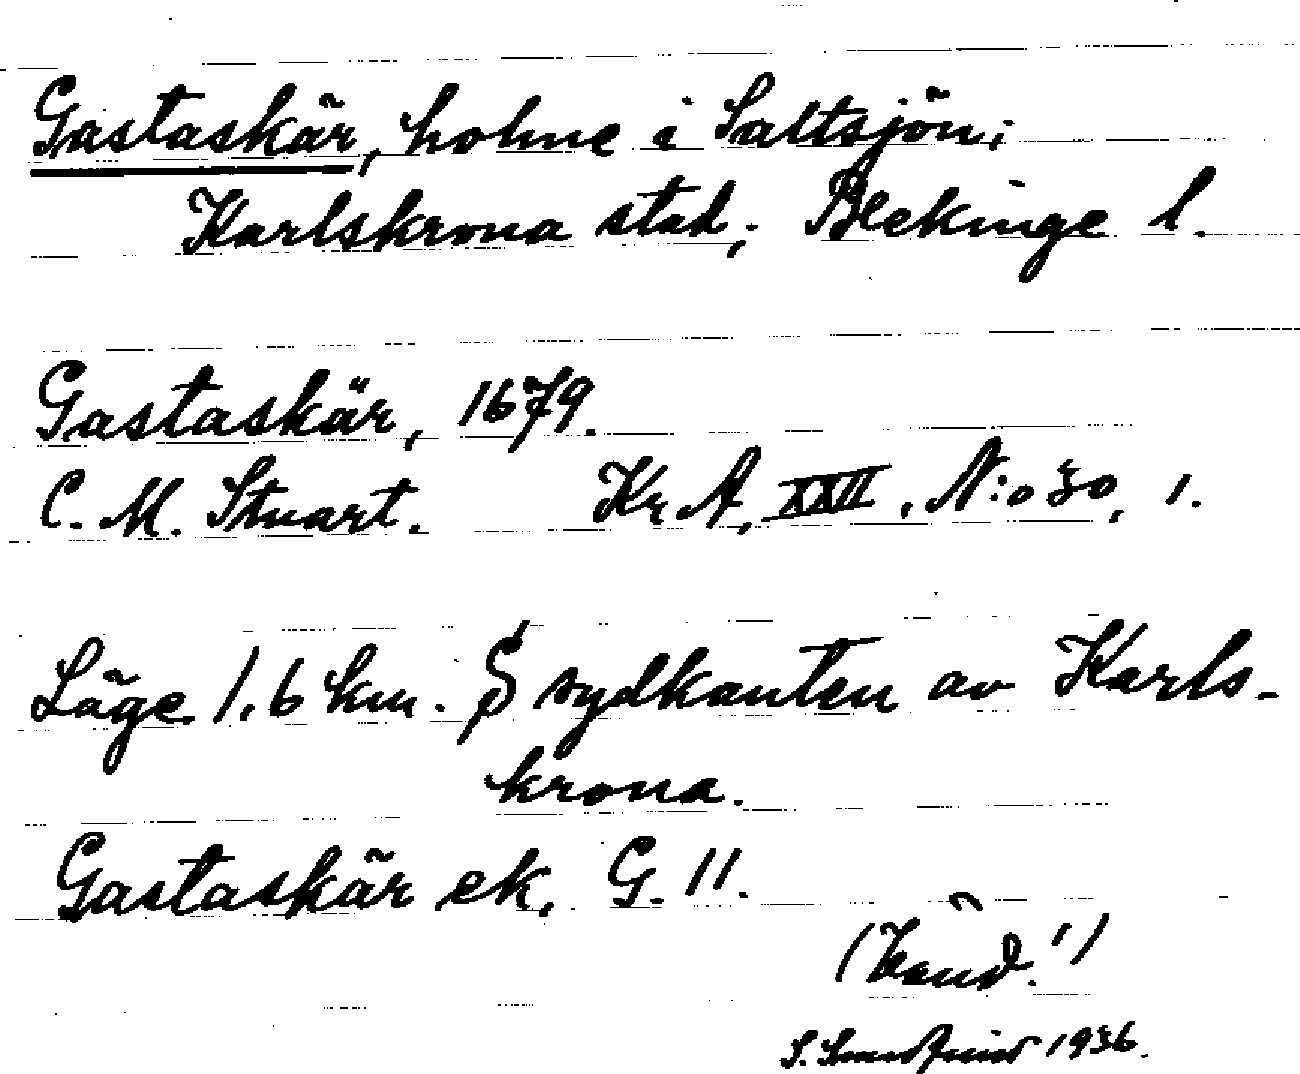 Gastaskär, holme i Saltsjön;
Karlskrona stad; Blekinge l.
Gastaskär, 1679.
C. M. Stuart. Kr. A, XXII, N:o 30, 1.
Läge 1,6 km. S sydkanten av Karls-
krona.
Gastaskär ek, G. 11.
(Vänd!)
S. 1936.